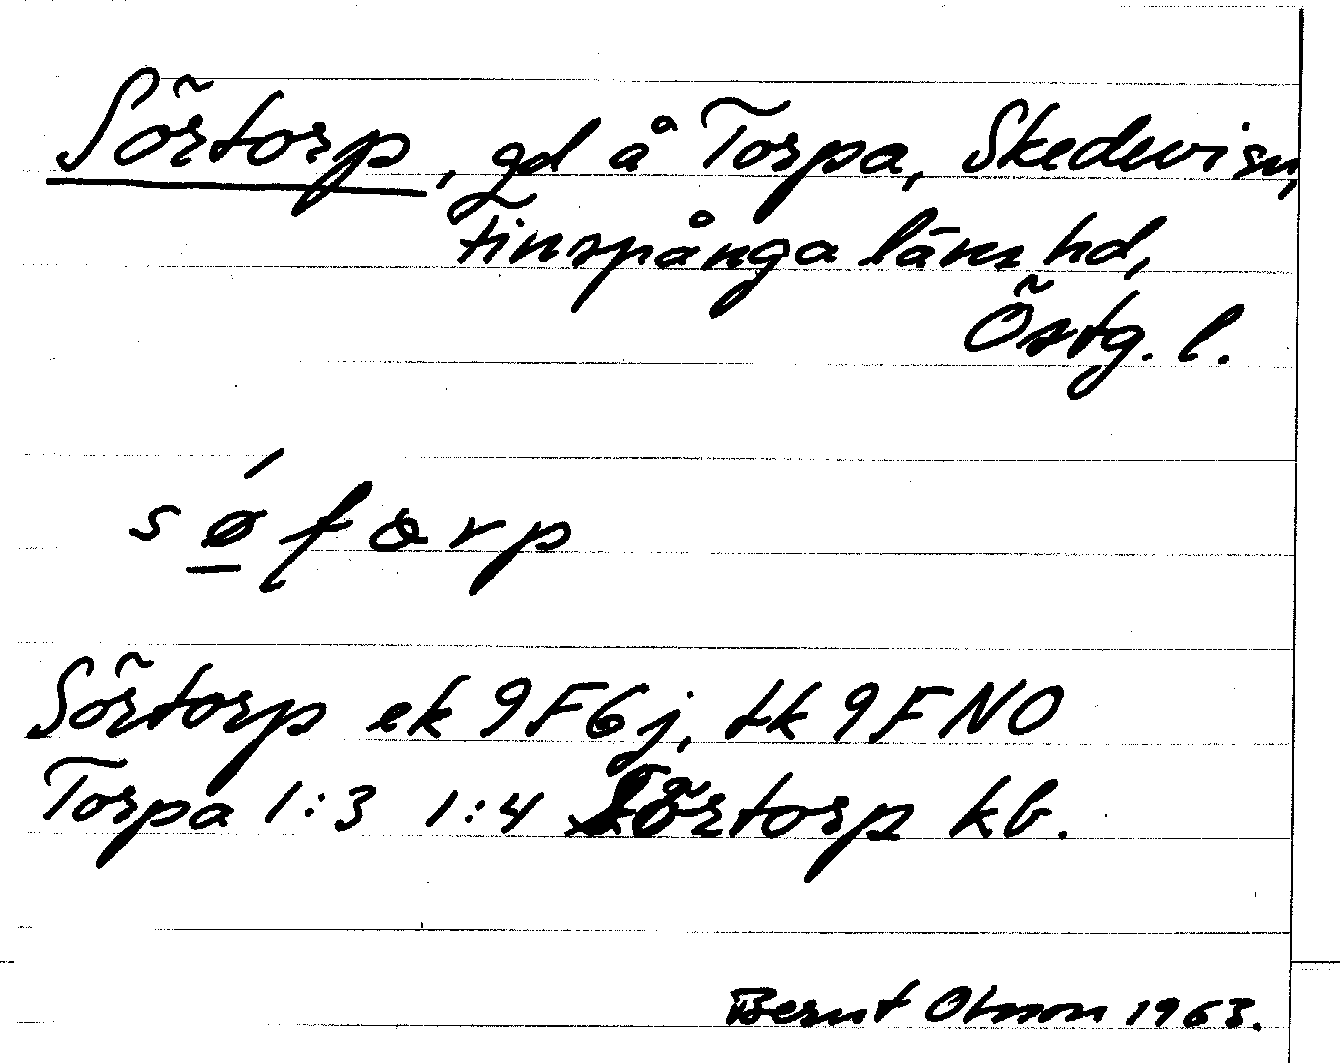 Sörtorp, gd å Torpa, Skedevi sn,
Finspånga läns hd,
Östg. l.
Sörtorp ek 9F6j, tk 9F NO
Torpa 1:3 1:4 Sörtorp kb.
Bernt Olsson 1963.